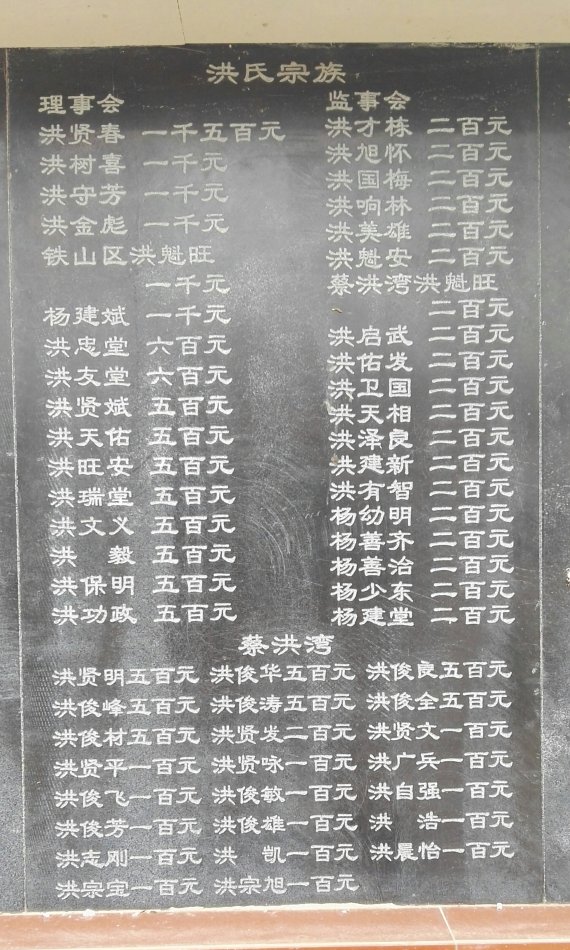 洪氏宗族
理事会
洪贤春 一千五百元
洪树喜 一千元
洪守芳 一千元
洪金彪 一千元
铁山区洪魁旺
一千元
杨建斌 一千元
洪忠堂 六百元
洪友堂 六百元
洪贤斌 五百元
洪天佑 五百元
洪旺安 五百元
洪瑞堂 五百元
洪文义 五百元
洪 毅 五百元
洪保明 五百元
洪功政 五百元
监事会
洪才栋 二百元
洪旭怀 二百元
洪国梅 二百元
洪响林 二百元
洪美雄 二百元
洪魁安 二百元
蔡洪湾洪魁旺
二百元
洪启武 二百元
洪佑发 二百元
洪卫国 二百元
洪天相 二百元
洪泽良 二百元
洪建新 二百元
洪有智 二百元
杨幼明 二百元
杨善齐 二百元
杨善治 二百元
杨少东 二百元
杨建堂 二百元
蔡洪湾
洪贤明五百元 洪俊华五百元 洪俊良五百元
洪俊峰五百元 洪俊涛五百元 洪俊全五百元
洪俊材五百元 洪贤发二百元 洪贤文一百元
洪贤平一百元 洪贤咏一百元 洪广兵一百元
洪俊飞一百元 洪俊敏一百元 洪自强一百元
洪俊芳一百元 洪俊雄一百元 洪 浩一百元
洪志刚一百元 洪 凯一百元 洪晨怡一百元
洪宗宝一百元 洪宗旭一百元